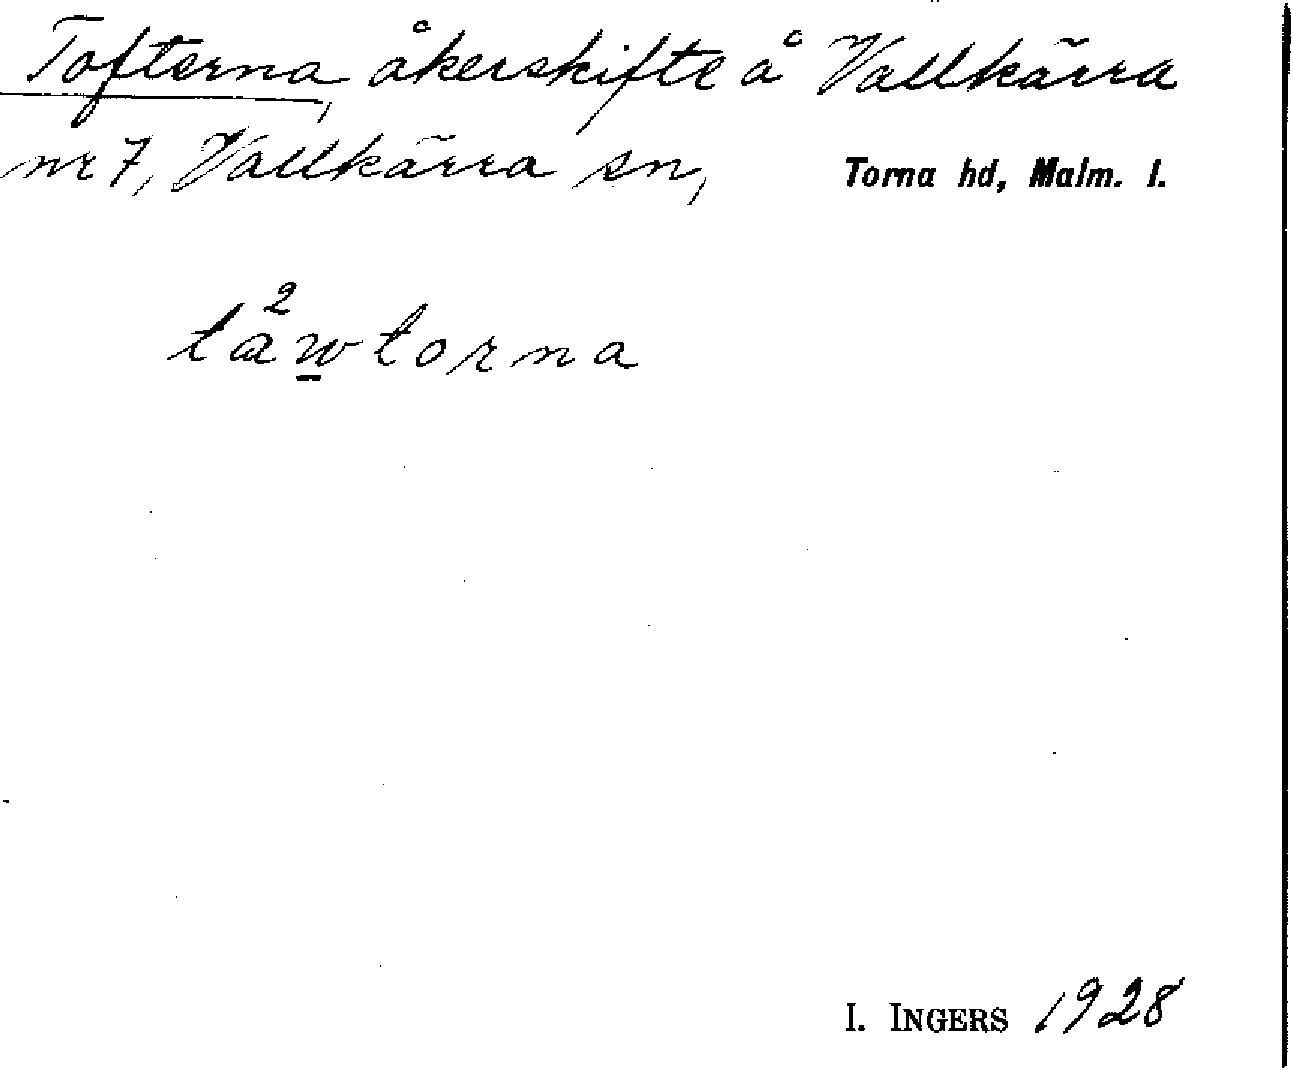 Tofterna, åkerskifte å Vallkärra
nr 7, Vallkärra sn, Torna hd, Malm. l.
tä²w̲torna
I. INGERS 1928